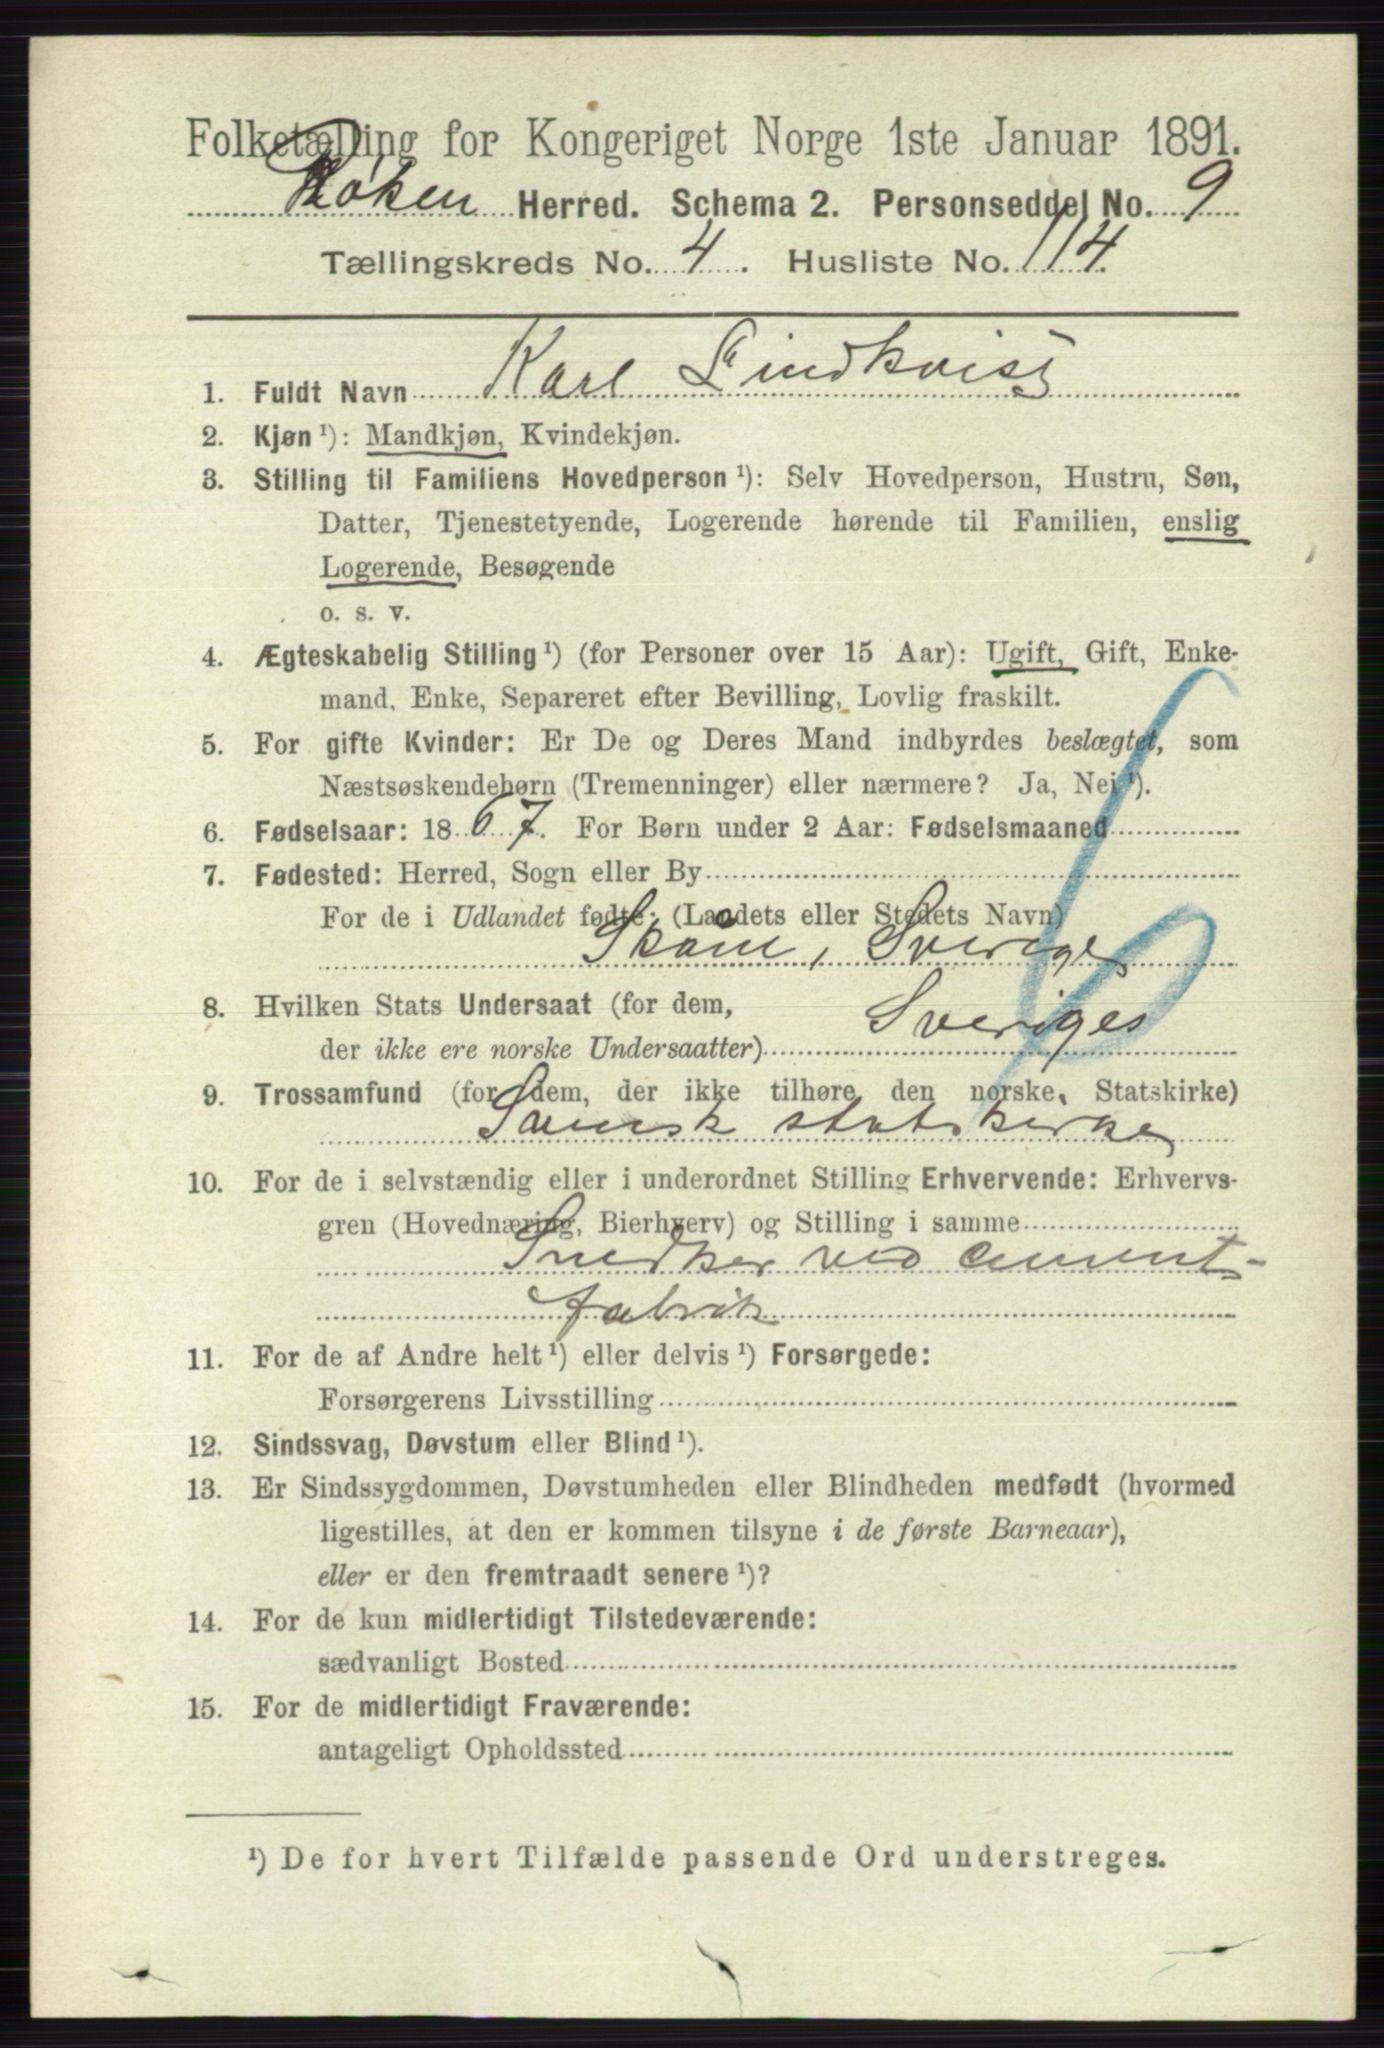 Folketælling for Kongeriget Norge 1ste Januar 1891.
Røken Herred. Schema 2. Personseddel No. 9
Tællingskreds No. 4. Husliste No. 114.
1. Fuldt Navn Karl Lindkvist
2. Kjøn ¹): Mandkjøn, Kvindekjøn.
3. Stilling til Familiens Hovedperson ¹): Selv Hovedperson, Hustru, Søn,
Datter, Tjenestetyende, Logerende hørende til Familien, enslig
Logerende, Besøgende
o. s. v.
4. Ægteskabelig Stilling ¹) (for Personer over 15 Aar): Ugift, Gift, Enke-
mand, Enke, Separeret efter Bevilling, Lovlig fraskilt.
5. For gifte Kvinder: Er De og Deres Mand indbyrdes beslægtet, som
Næstsøskendebørn (Tremenninger) eller nærmere? Ja, Nei ¹).
6. Fødselsaar: 1867. For Børn under 2 Aar: Fødselsmaaned
7. Fødested: Herred, Sogn eller By
For de i Udlandet fødte: (Landets eller Stedets Navn)
Skåne, Sverige
8. Hvilken Stats Undersaat (for dem,
der ikke ere norske Undersaatter) Sveriges
9. Trossamfund (for dem, der ikke tilhøre den norske Statskirke)
Svensk statskirke
10. For de i selvstændig eller i underordnet Stilling Erhvervende: Erhvervs-
gren (Hovednæring, Bierhverv) og Stilling i samme
Snedker ved cement-
fabrik
11. For de af Andre helt ¹) eller delvis ¹) Forsørgede:
Forsørgerens Livsstilling
12. Sindssvag, Døvstum eller Blind ¹).
13. Er Sindssygdommen, Døvstumheden eller Blindheden medfødt (hvormed
ligestilles, at den er kommen tilsyne i de første Barneaar),
eller er den fremtraadt senere ¹)?
14. For de kun midlertidigt Tilstedeværende:
sædvanligt Bosted
15. For de midlertidigt Fraværende:
antageligt Opholdssted
¹) De for hvert Tilfælde passende Ord understreges.